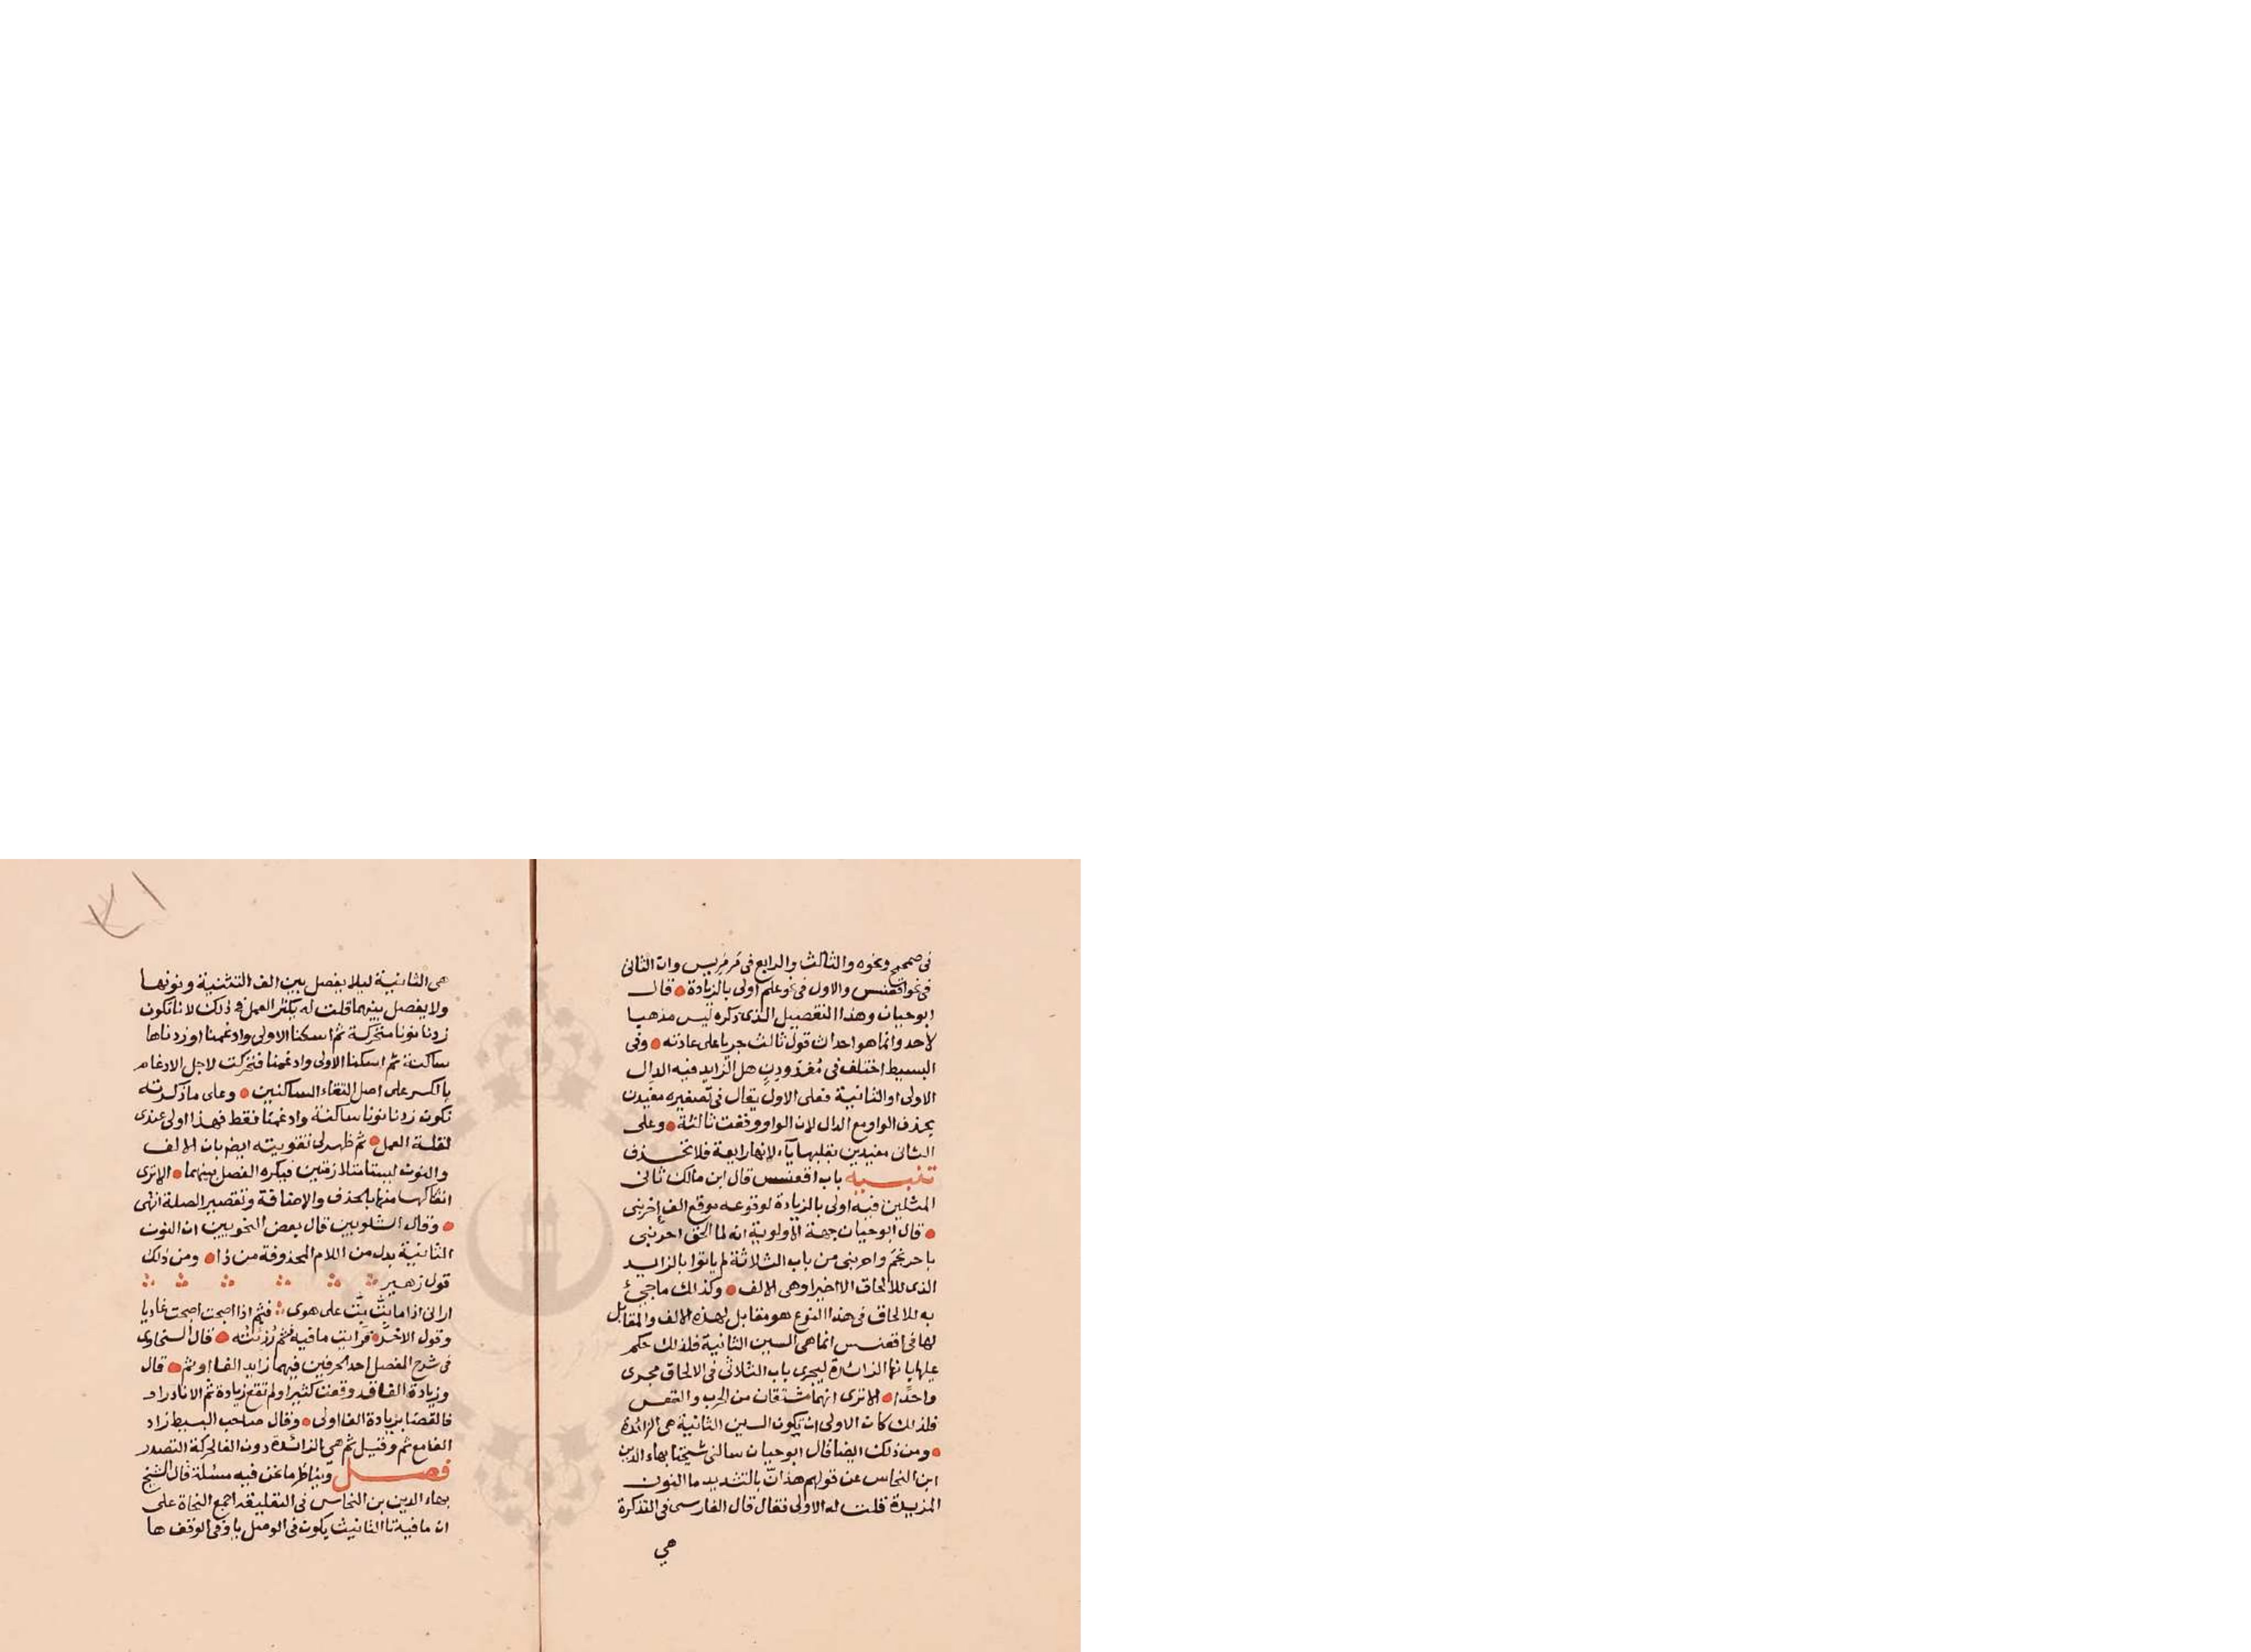 في صمحمح ونحوه والثالث والرابع في مَرمَرِيس وان الثاني
في نحو اقعنسس والاول في نحو علم اولى بالزيادة قال
ابو حيان وهذا التفصيل الذي ذكره ليس مذهبا
لاحد وانما هو احداث قول ثالث جريا على عادته وفي
البسيط اختلف في مُغدَودِنٍ هل الزايد فيه الدال
الاولى او الثانية فعلى الاول يقال في تصغيره مغيدن
بحذف الواو مع الدال لان الواو وقعت ثالثة وعلى
الثاني مغيدين بقلبها ياء لانها رابعة فلا تحذف
تنبيه باب اقعنسس قال ابن مالك ثاني
المثلين فيه اولى بالزيادة لوقوعه موقع الف احرنبى
قال ابو حيان جهة الاولوية انه لما الحق احرنبى
باحرنجم واحرنبى من باب الثلاثة لم ياتوا بالزايد
الذي للالحاق الا اخيرا وهى الالف وكذلك ما جيئ
به للالحاق في هذا النوع هو مقابل لهذه الالف والمقابل
لها في اقعنسس انما هي السين الثانية فلذلك حكم
عليها بانها الزائدة ليجرى باب الثلاثي في الالحاق مجرى
واحدًا الا ترى انهما مشتقان من الحرب والقعس
فلذلك كان الاولى ان تكون السين الثانية هي الزائدة
ومن ذلك ايضا قال ابو حيان سالني شيخنا بهاء الدين
ابن النحاس عن قولهم هذانّ بالتشديد ما النون
المزيدة قلت له الاولى فقال قال الفارسى في التذكرة
هي
هى الثانية ليلا يفصل بين الف التثنية ونونها
ولا يفصل بينهما قلت له يكثر العمل في ذلك لانا نكون
زدنا نونا متحركة ثم اسكنا الاولى وادغمنا او زدناها
ساكنة ثم اسكنا الاولى وادغمنا فتحركت لاجل الادغام
بالكسر على اصل التقاء الساكنين وعلى ما ذكرته
نكون زدنا نونا ساكنة وادغمنا فقط فهذا اولى عندى
لقلة العمل ثم ظهر لى تقويته ايضا بان الالف
والنون ليستا متلازمتين فيكره الفصل بينهما الا ترى
انفكاكها منها بالحذف والاضافة وتقصير الصلة انتهى
وقال الشلوبين قال بعض النحويين ان النون
الثانية بدل من اللام المحذوفة من ذا ومن ذلك
قول زهير
اراني اذا ما بِتُّ بِتُّ على هوى فثم اذا اصبحت اصبحت غاديا
وقول الاخر فرايت ما فيه فثم رُزِئتُه قال السخاوى
في شرح المفصل احد الحرفين فيهما زايد الفا او ثم قال
وزيادة الفا قد وقعت كثيرا ولم تقع زيادة ثم الا نادرا
فالقضا بزيادة الفا اولى وقال صاحب البسيط زاد
الفا مع ثم وقيل ثم هي الزائدة دون الفا لحركة التصدر
فصل ويناظر ما نحن فيه مسئلة قال الشيخ
بهاء الدين بن النحاس في التعليقة اجمع النحاة على
ان ما فيه تا التانيث يكون في الوصل تا وفي الوقف ها